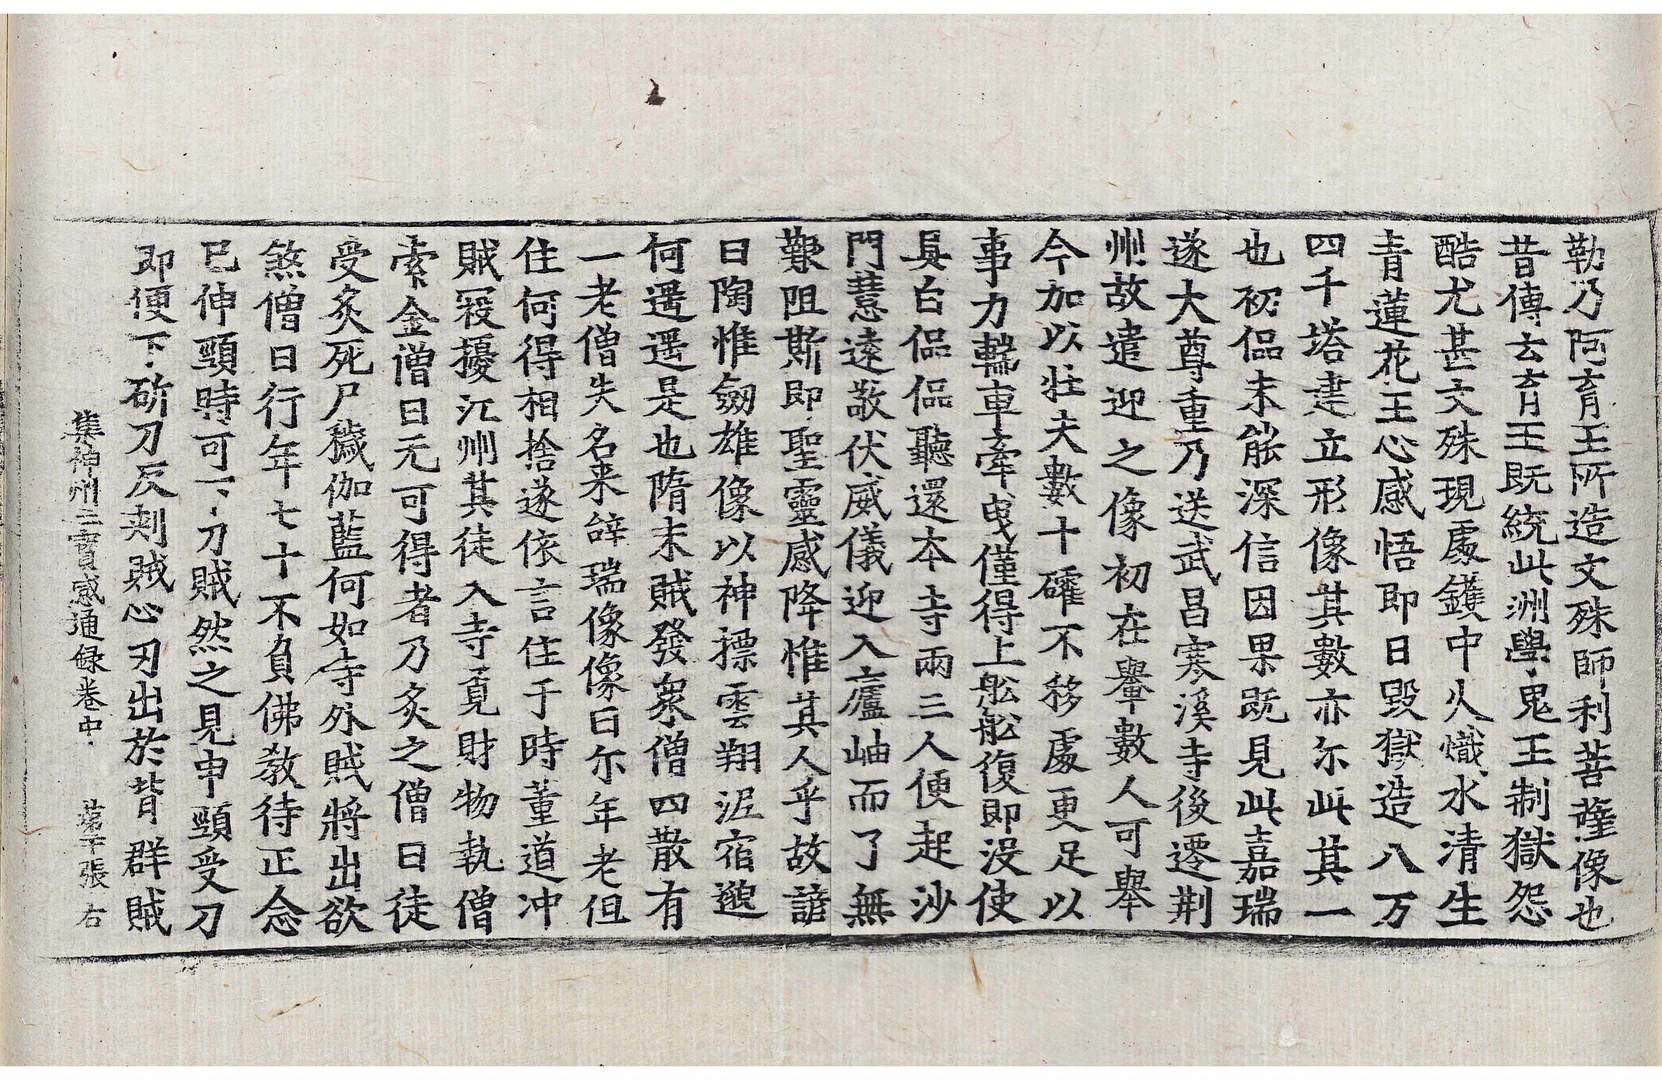 勒乃阿育王所造文殊師利菩薩像也
昔傳云育王既統此洲學鬼王制獄怨
酷尤甚文殊現處鑊中火熾水清生
青蓮花王心感悟即日毀獄造八万
四千塔建立形像其數亦尓此其一
也初侃未能深信因果既見此嘉瑞
遂大尊重乃送武昌寒溪寺後遷荆
州故遣迎之像初在轝數人可舉
今加以壯夫數十確不移處更足以
事力轝車牽曳僅得上舩舩復即没使
具白侃侃聽還本寺兩三人便起沙
門慧遠敬伏威儀迎入廬岫而了無
艱阻斯即聖靈感降惟其人乎故諺
曰陶惟劒雄像以神摽雲翔泥宿邈
何遥遥是也隋末賊發衆僧四散有
一老僧失名来辞瑞像像曰尓年老但
住何得相捨遂依言住于時董道冲
賊冦擾江州其徒入寺覓財物執僧
索金僧曰无可得者乃炙之僧曰徒
受炙死尸穢伽藍何如寺外賊將出欲
煞僧曰行年七十不負佛教待正念
已伸頸時可下刀賊然之見申頸受刀
即便下斫刀反刺賊心刃出於背群賊
集神州三寶感通録卷中 第十張 右